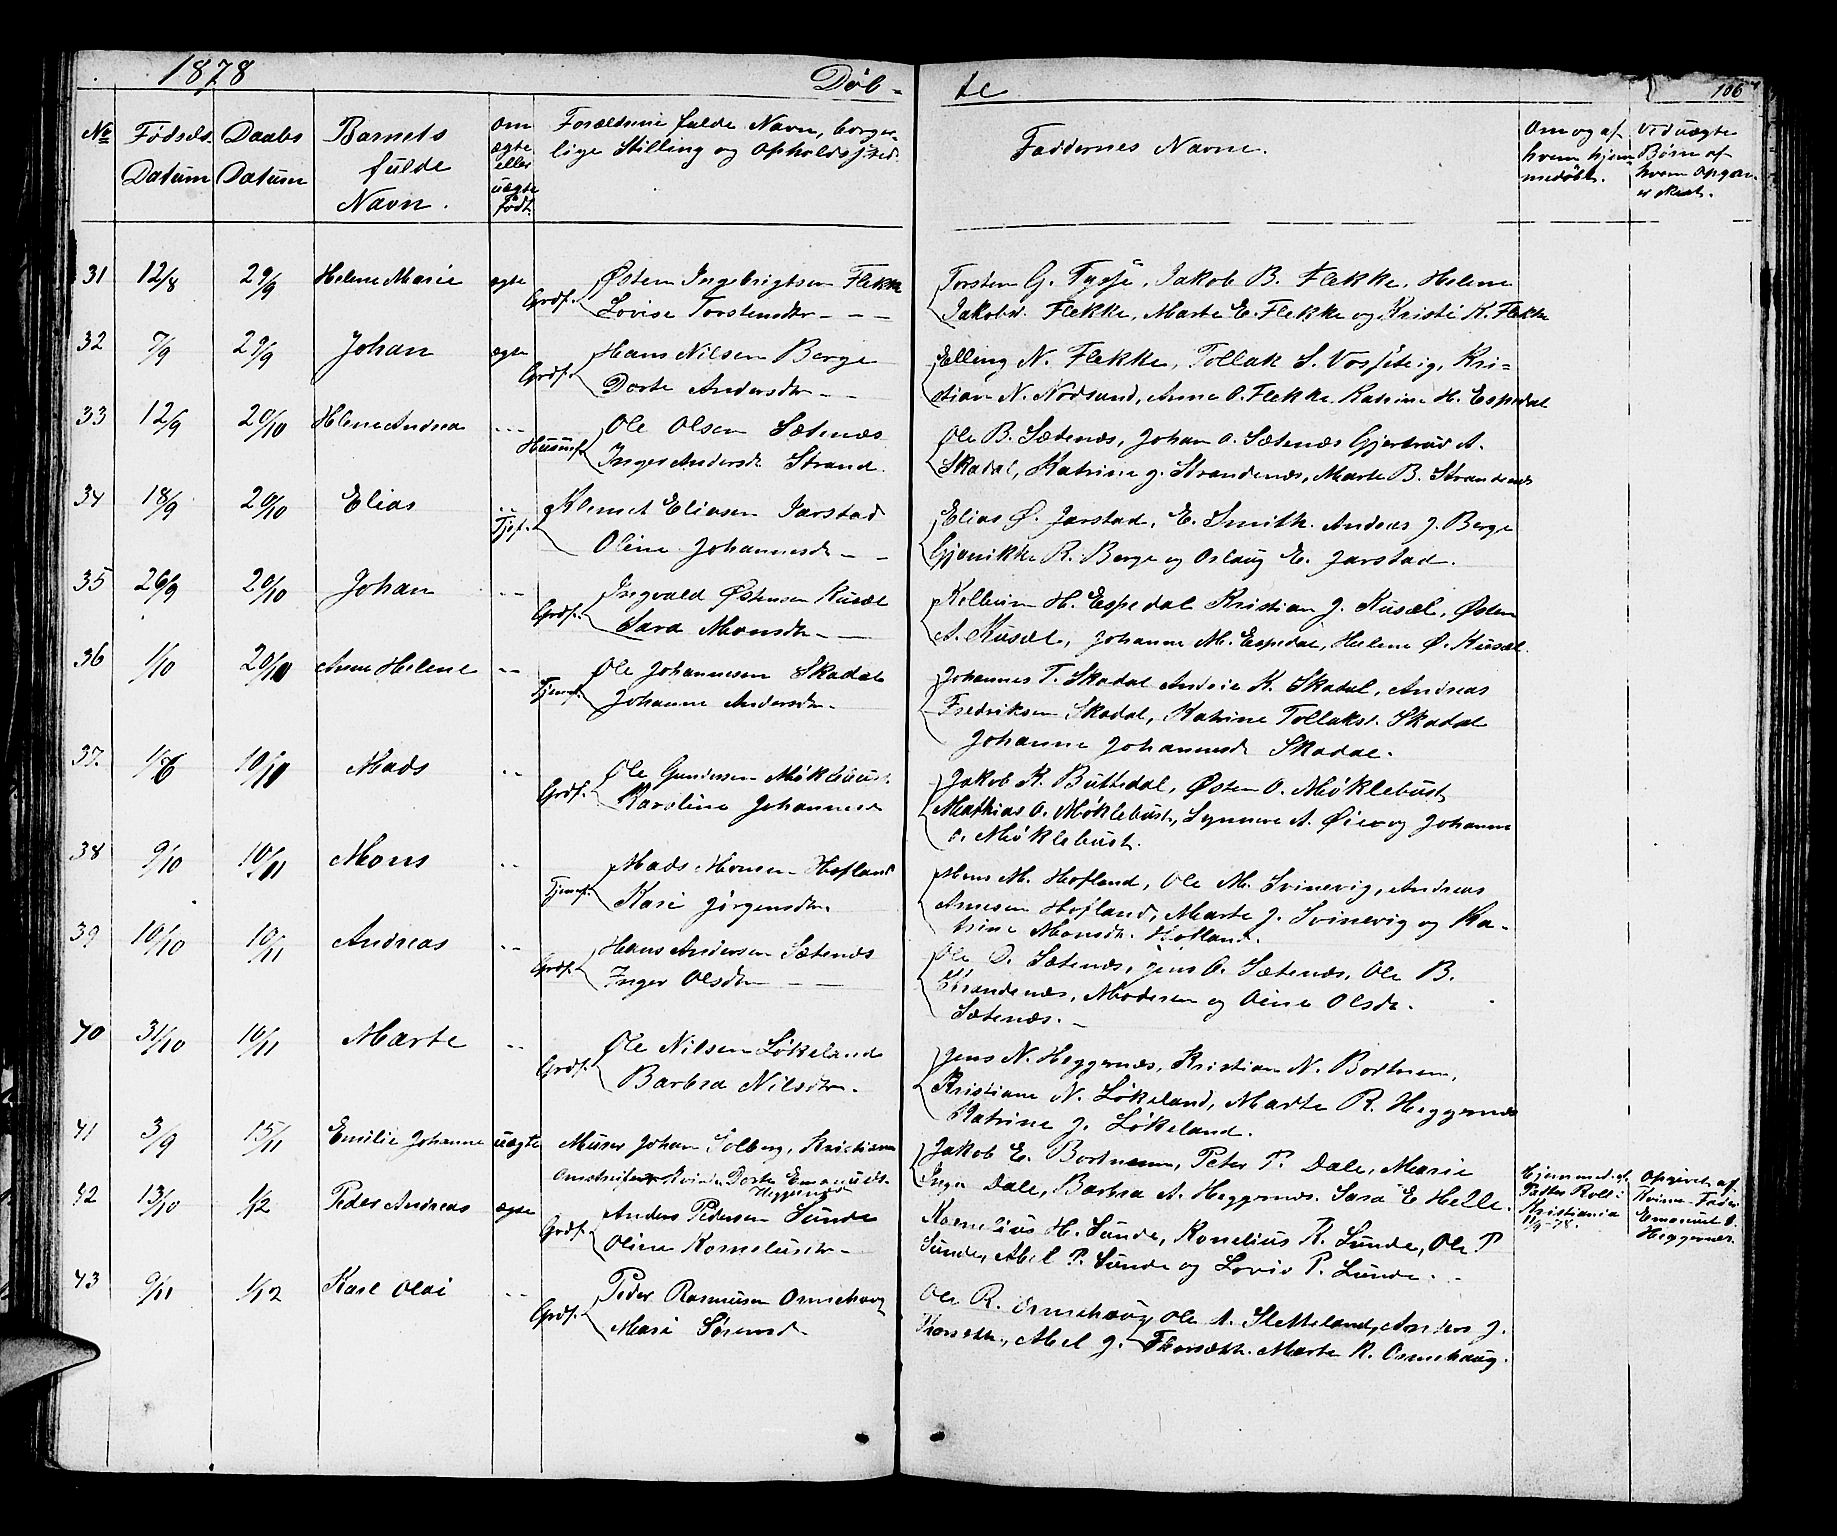 1878 Døb- te 106
No Fødsels Datum Daabs Datum Barnets fulde Navn. Om ægte eller uægte født. Forældrenes fulde Navn, borger-
lige Stilling og Opholdssted. Faddernes Navne. Om og af hvem hjem-
medøbt. Ved uægte Børn af hvem Opgav. er skeet.
31 12/8 29/9 Helene Marie ægte Grdf. Østen Ingebrigtsen Flekke
Lovise Torstensdtr - - -
Torsten G. Tysse, Jakob B. Flekke, Helene
Jakobsd. Flekke, Marte E. Flekke og Kristi K. Flekke
32 7/9 29/9 Johan ægte Grdf. Hans Nilsen Berge
Dorte Andersdtr - -
Elling N. Flekke, Tollak S. Vossteig, Kri=
stian N. Nodsund, Anne O. Flekke, Katrine H. Espedal
33 12/9 20/10 Helene Andrea - - - Husmf. Ole Olsen Sætenes
Inger Andersdr Strand.
Ole B. Sætenæs, Johan O. Sætenæs Gjertrud A.
Skadal, Katrine J. Strandenæs, Marte B. Strandenæs
34 18/9 20/10 Elias - - Tjf. Klemet Eliasen Jarstad
Oline Johannesdr - -
Elias Ø. Jarstad, E. Smith, Andreas J. Berge
Gjønikke R. Berge og Oslaug E. Jarstad.
35 26/9 20/10 Johan - - Grdf. Ingvald Østensen Kusæl
Sara Monsdtr - -
Kolbein H. Espedal Kristian J. Kusæl, Østen
A. Kusæl, Johanne M. Espedal, Helene Ø. Kusæl.
36 1/10 20/10 Anne Helene - - Tjenf. Ole Johannesen Skadal
Johanne Andersdtr.
Johannes T. Skadal K. Skadal, Andreas
Fredriksen Skadal, Katrine Tollaksd. Skadal
Johanne Johannesdr Skadal.
37. 10/10 Mads - - Grdf. Ole Gundersen Møklebust.
Karoline Johannesd
Jakob K. Buttedal, Østen O. Møklebust
Mathias O. Møklebust, Synneve A. Øien og Johanne
O. Møklebust.
38 9/10 10/11 Mons - - Tjenf. Mads Monsen Hofland
Kari Jørgensdtr.
Mons M. Hofland, Ole M. Svinevig, Andreas
Hofland, Marte J. Svinevig og Ka-
trine Monsdtr. Hofland.
39 10/10 10/11 Andreas - - Grdf. Hans Andersen Sætenæs
Inger Olsdtr - -
Ole O. Sætenæs, Jens O. Sætenæs, Ole B.
Strandenæs, Moderen og Oline Olsdr.
Sætenæs. -
40 31/10 10/11 Marte - - Grdf. Ole Nilsen Løkeland
Barbra Nilsdtr.
Jens N. Heggernæs, Kristian N. Bortnem,
Kristiane N. Løkeland, Marte R. Heggernæs
Katrine J. Løkeland.
41 3/9 15/11 Emilie Johanne uægte Murer Johan Solberg, Kristiania
Dorte Emanuelsd.
Heggernæs
Jakob E. Bortnemn, Peter P. Dale, Marie
Inga Dale, Barbra A. Heggernes. Sara E Helle.
Hjemmed. af
Kristiania
11/9-78.
Opgivet af
Kvindens Fader
Emanuel
Heggernæs.
42 13/10 1/12 Peder Andreas ægte Grdf. Anders Pedersen Sunde
Oline Korneliusdtr -
Kornelius H. Sunde, Kornelius R. Sunde, Ole P
Sunde, Abel P. Sunde og Lovis P. Sunde.
43 9/11 1/12 Karl Olai - - Grdf. Peder Rasmusen Ormehaug
Mari Sørensd
Ole R. Ormehaug Ole A. Sletteland, Anders J.
Abel J. Marte R. Ormehaug.